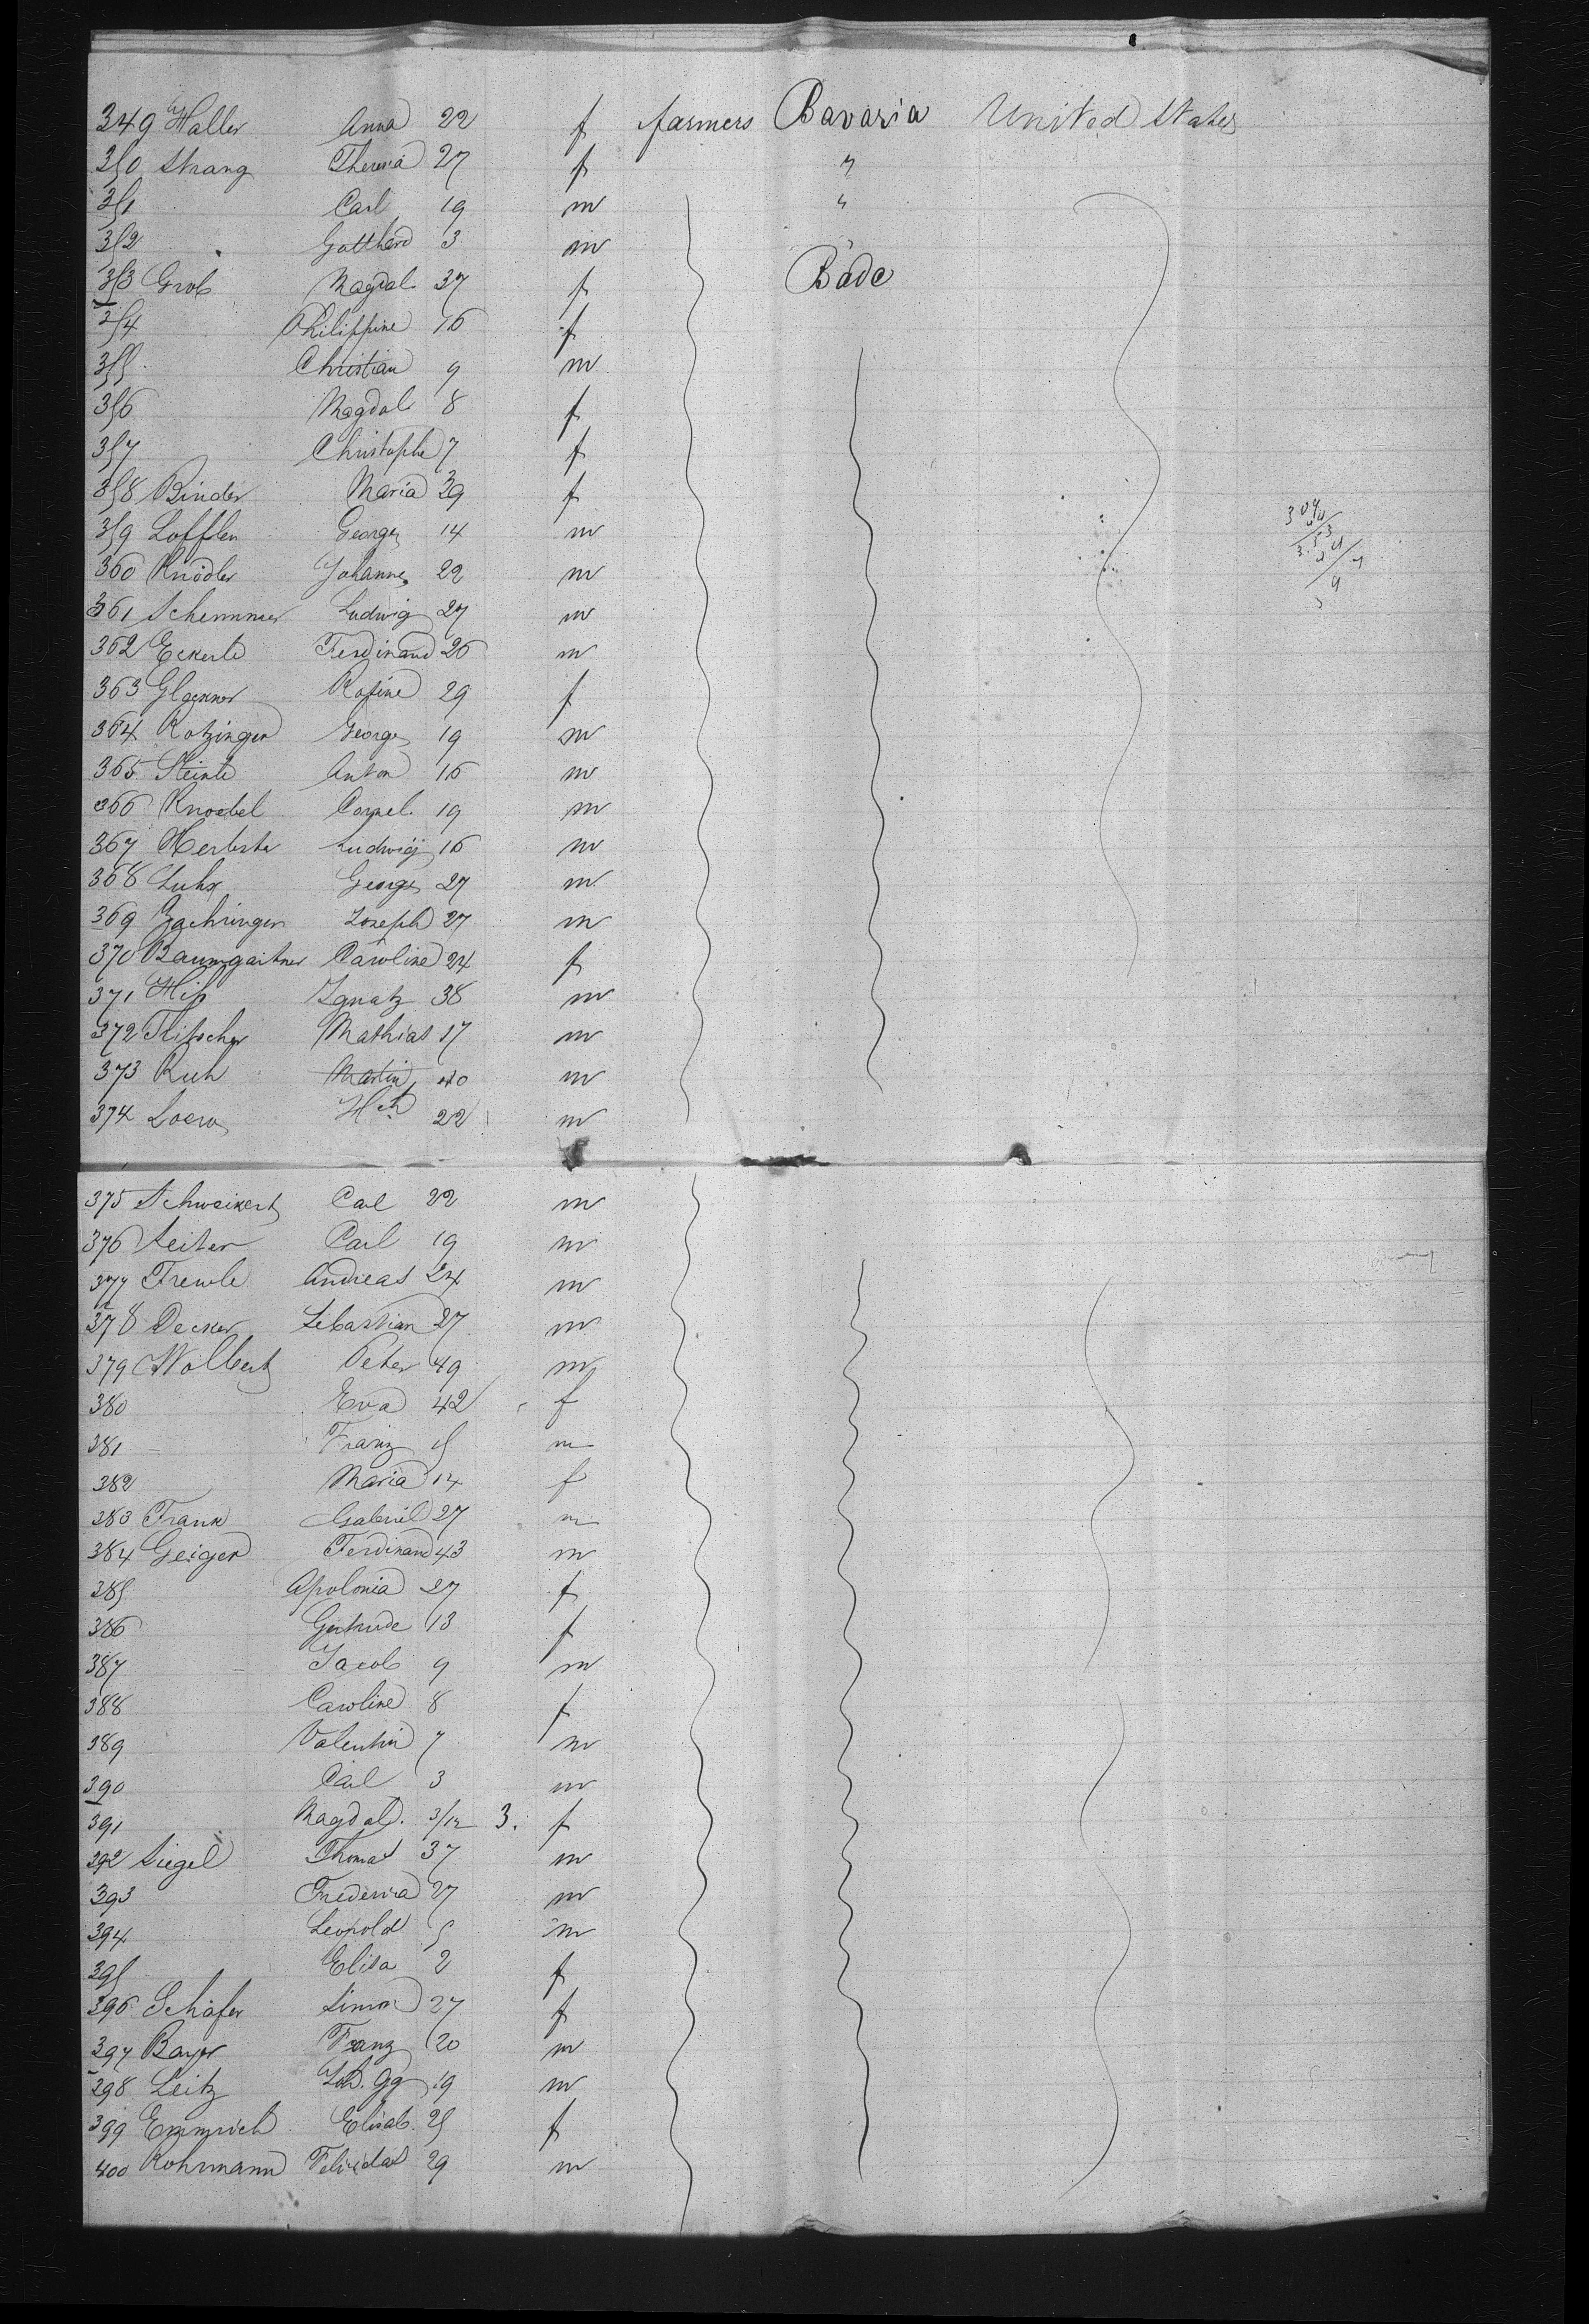 349 Haller Anna 22 f farmers Bavaria United States
350 Strang Theresia 27 f "
351 Carl 19 m "
352 Gotthard 3 m "
353 Grob Magdal. 37 f Bade
354 Philippine 16 f
355 Christian 9 m
356 Magdal. 8 f
357 Christophe 7 f
358 Binder Maria 39 f
359 Lofflen Georges 14 m
360 Knödler Johannes 22 m
361 Schemmer Ludwig 27 m
362 Eckerle Ferdinand 26 m
363 Glockner Rosine 29 f
364 Rotzinger Georges 19 m
365 Steinle Anton 16 m
366 Knoebel Cornel. 19 m
367 Herbster Ludwig 16 m
368 Georges 27 m
369 Gaehringer Joseph 27 m
370 Baumgartner Caroline 24 f
371 Hip Ignatz 38 m
372 Flitscher Mathias 17 m
373 Ruh Martin 40 m
374 Hch 22 m
375 Schweikert Carl 22 m
376 Seiter Carl 19 m
377 Andreas 24 m
378 Decker Sebastian 27 m
379 Wolbert Peter 49 m
380 Eva 42 f
381 Franz 15 m
382 Maria 14 f
383 Frank Gabriel 27 m
384 Geiger Ferdinand 43 m
385 Apolonia 37 f
386 Gertrude 13 f
387 Jacob 9 m
388 Caroline 8 f
389 Valentin 7 m
390 Carl 3 m
391 Magdal. 3/12 3. f
392 Siegel Thomas 37 m
393 27 m
394 Leopold 5 m
395 Elisa 2 f
396 Schäfer Simon 27 f
397 Bayer Franz 20 m
398 Leitz Joh. Gg 19 m
399 Emmrich Elisab. 25 f
400 Rohrmann Felicidas 29 m